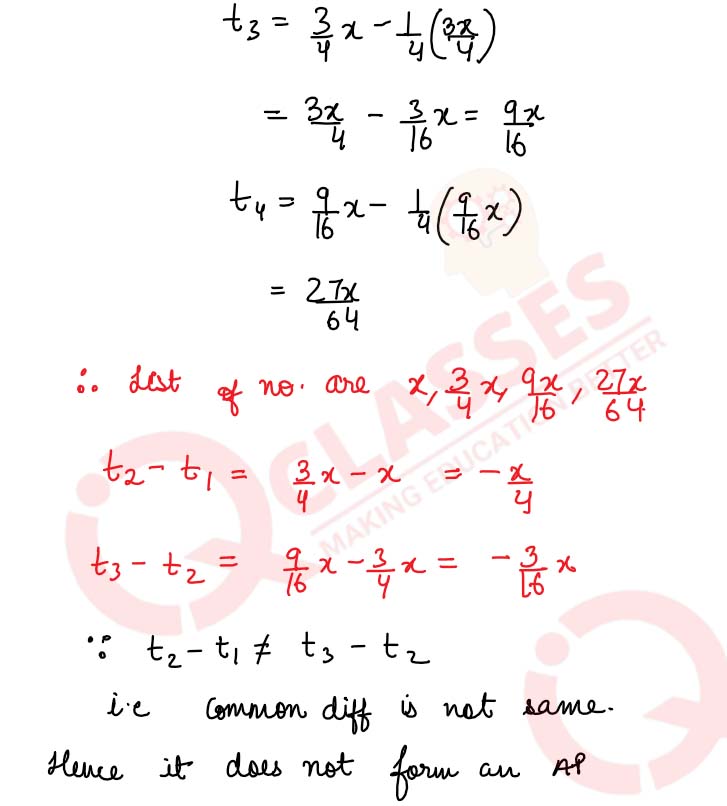 t₃ = 3/4 x - 1/4 (3x/4)
= 3x/4 - 3/16 x = 9x/16
t₄ = 9/16 x - 1/4 (9/16 x)
= 27x/64
∴ List of no. are x, 3/4 x, 9x/16, 27x/64
t₂ - t₁ = 3/4 x - x = - x/4
t₃ - t₂ = 9/16 x - 3/4 x = - 3/16 x
∵ t₂ - t₁ ≠ t₃ - t₂
i.e common diff is not same.
Hence it does not form an AP
CLASSES
MAKING EDUCATION BETTER